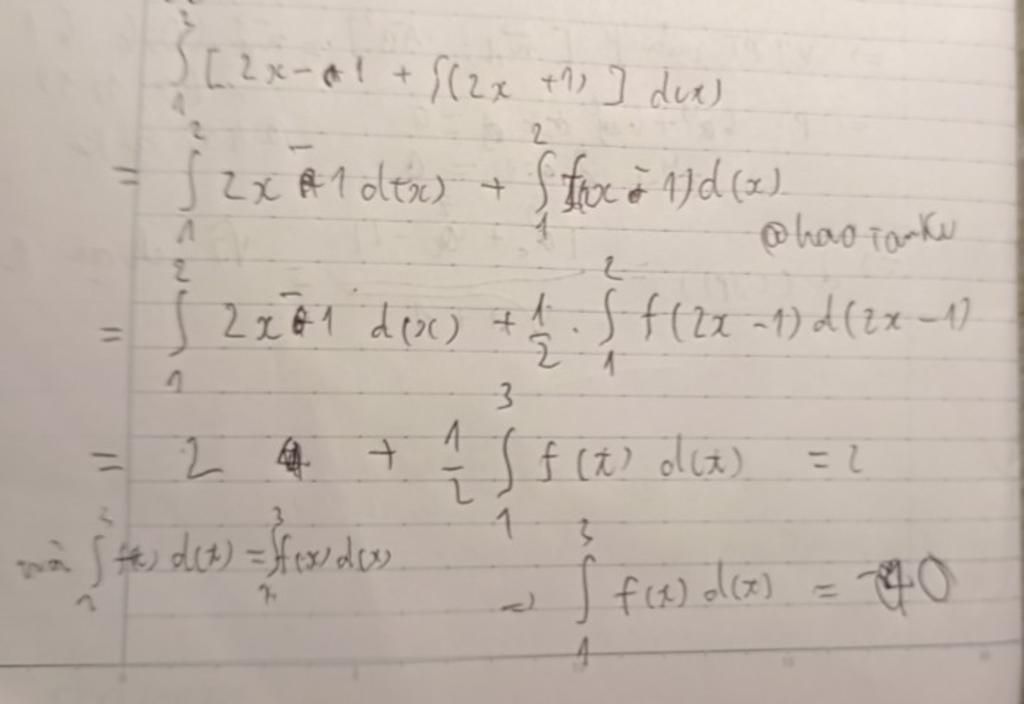 ∫₁² [2x - 1 + f(2x + 1)] d(x)
= ∫₁² 2x - 1 d(x) + ∫₁² f(2x - 1) d(x)
@haoTamKu
= ∫₁² 2x - 1 d(x) + 1/2 . ∫₁² f(2x - 1) d(2x - 1)
= 2 + 1/2 ∫₁³ f(t) d(t) = 2
mà ∫₁³ f(t) d(t) = ∫₁³ f(x) d(x)
=> ∫₁³ f(x) d(x) = 0